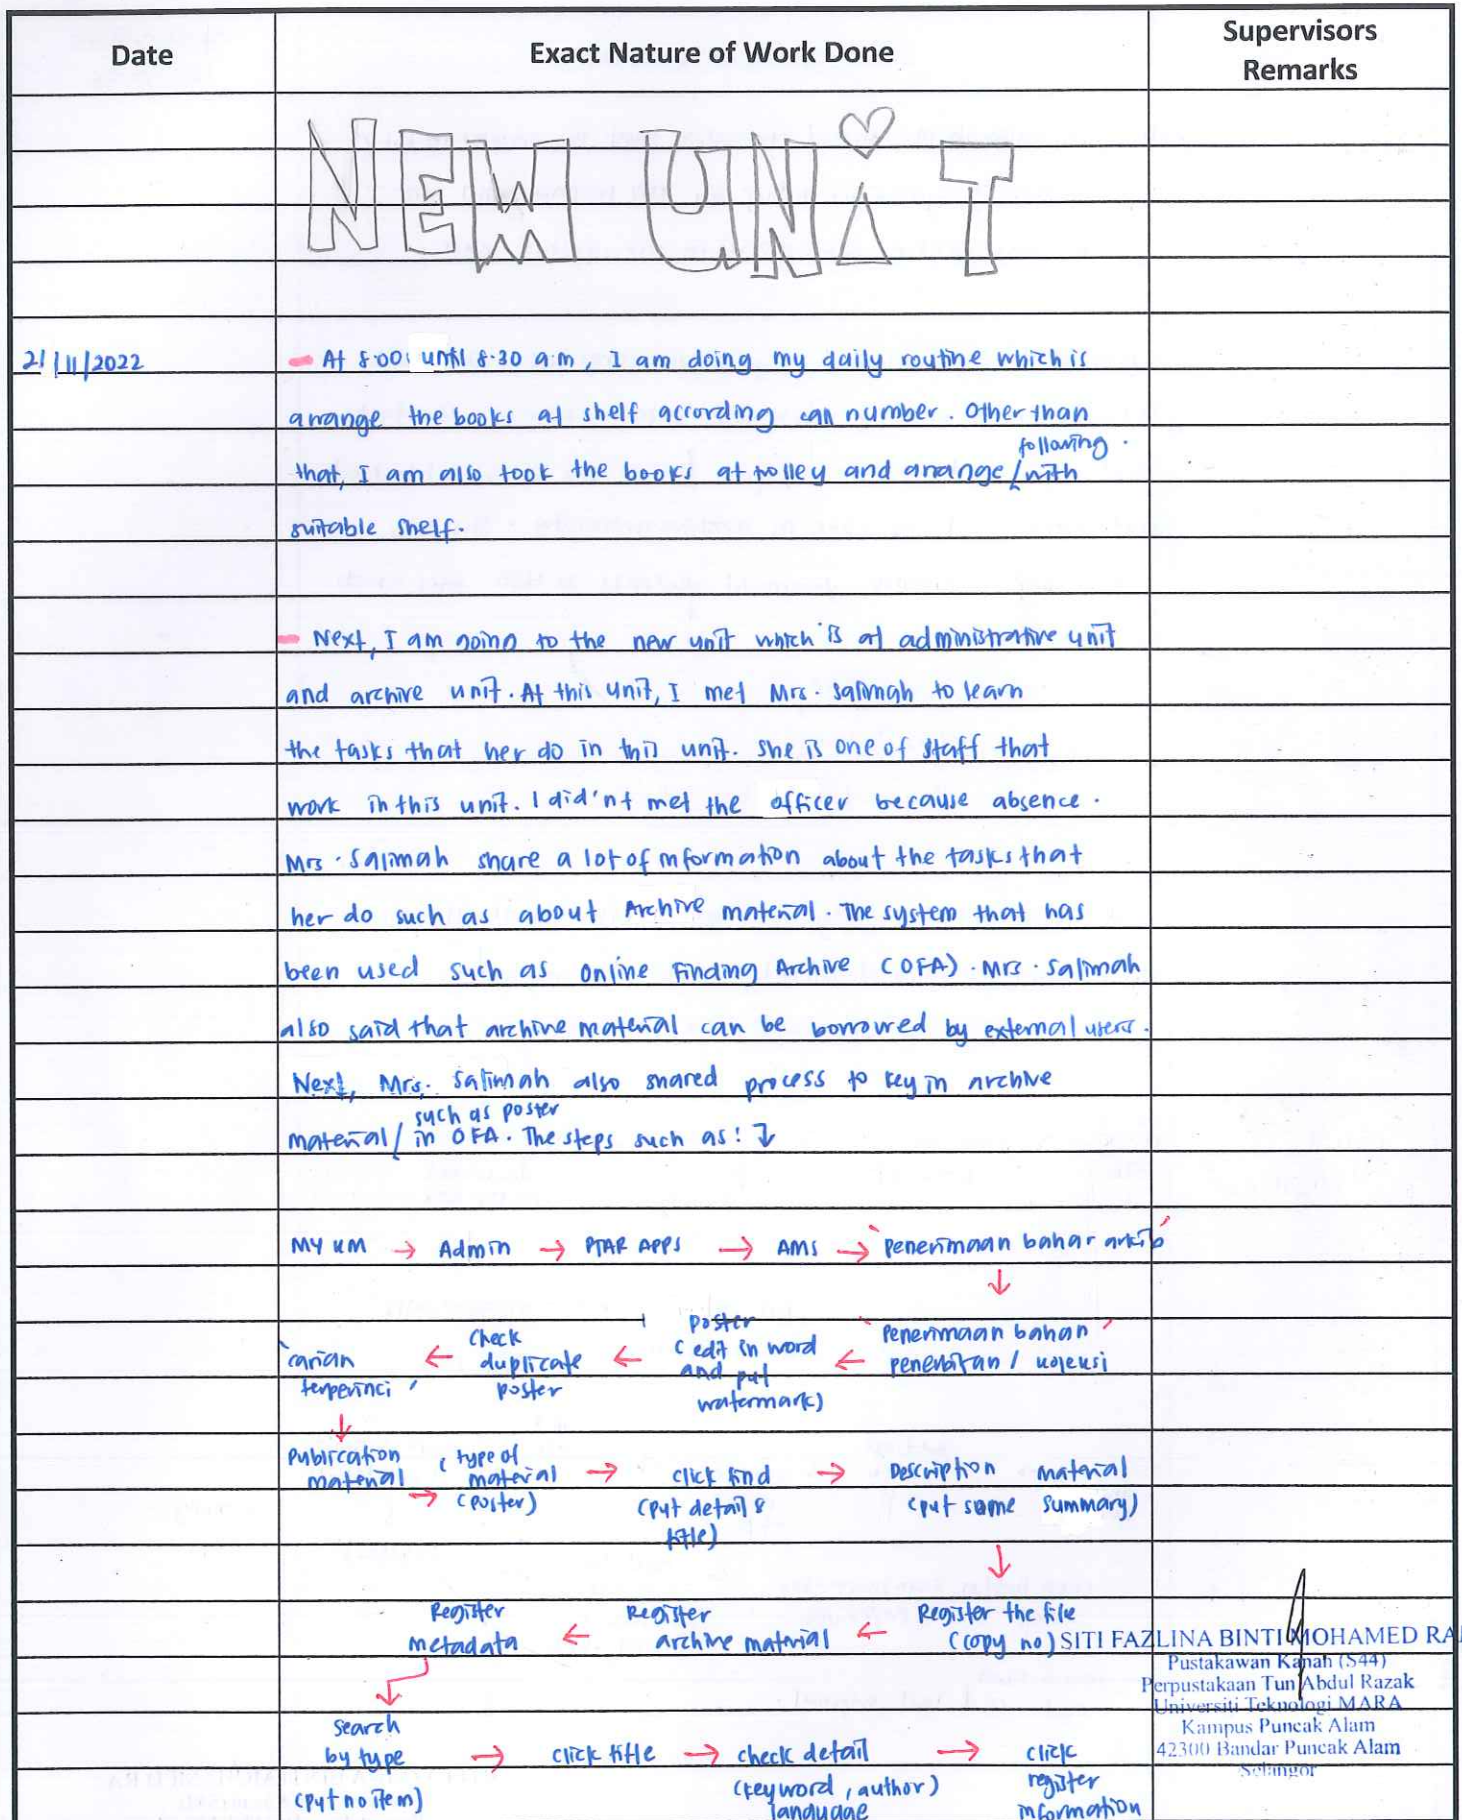 Date
Exact Nature of Work Done
Supervisors
Remarks
NEW UNiT
21/11/2022
- At 8.00 until 8.30 am, I am doing my daily routine which is
arrange the books at shelf according call number. Other than
following.
that, I am also took the books at trolley and arrange / with
suitable shelf.
- Next, I am going to the new unit which is at administrative unit
and archive unit. At this unit, I met Mrs. Salimah to learn
the tasks that her do in this unit. She is one of staff that
work in this unit. I did'nt met the officer because absence.
Mrs. Salimah share a lot of information about the tasks that
her do such as about Archive material. The system that has
been used such as Online Finding Archive (OFA). Mrs. Salimah
also said that archive material can be borrowed by external users.
Next, Mrs. Salimah also shared process to key in archive
such as poster
material / in OFA. The steps such as: ↓
MY KM → Admin → PTAR APPS → AMS → 'Penerimaan bahar arkib'
↓
'Penerimaan bahan
penerbitan / koleksi'
←
Poster
(edit in word
and put
watermark)
←
Check
duplicate
poster
←
'carian
terperinci'
↓
Publication
material
→
(type of
material
(poster)
→
click find
(put detail &
title)
→
Description material
(put some summary)
↓
Register the file
(copy no)
←
Register
archive material
←
Register
metadata
↓
Search
by type
(put no item)
→
click title
→
check detail
(keyword, author)
language
→
click
register
information
SITI FAZLINA BINTI MOHAMED RA
Pustakawan Kanan (S44)
Perpustakaan Tun Abdul Razak
Universiti Teknologi MARA
Kampus Puncak Alam
42300 Bandar Puncak Alam
Selangor